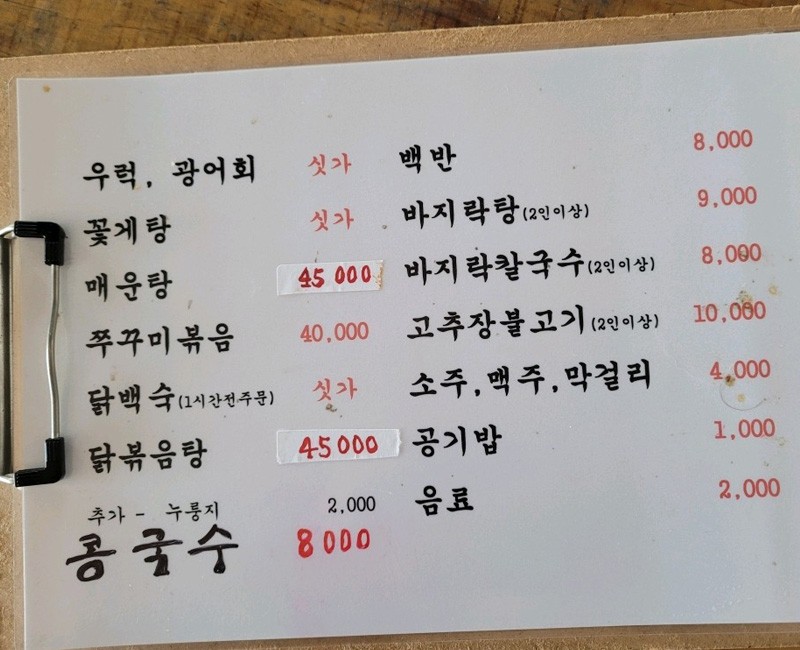 우럭, 광어회 싯가
꽃게탕 싯가
매운탕 45000
쭈꾸미볶음 40,000
닭백숙(1시간전주문) 싯가
닭볶음탕 45000
추가 - 누룽지 2,000
콩국수 8000
백반 8,000
바지락탕(2인이상) 9,000
바지락칼국수(2인이상) 8,000
고추장불고기(2인이상) 10,000
소주,맥주,막걸리 4,000
공기밥 1,000
음료 2,000